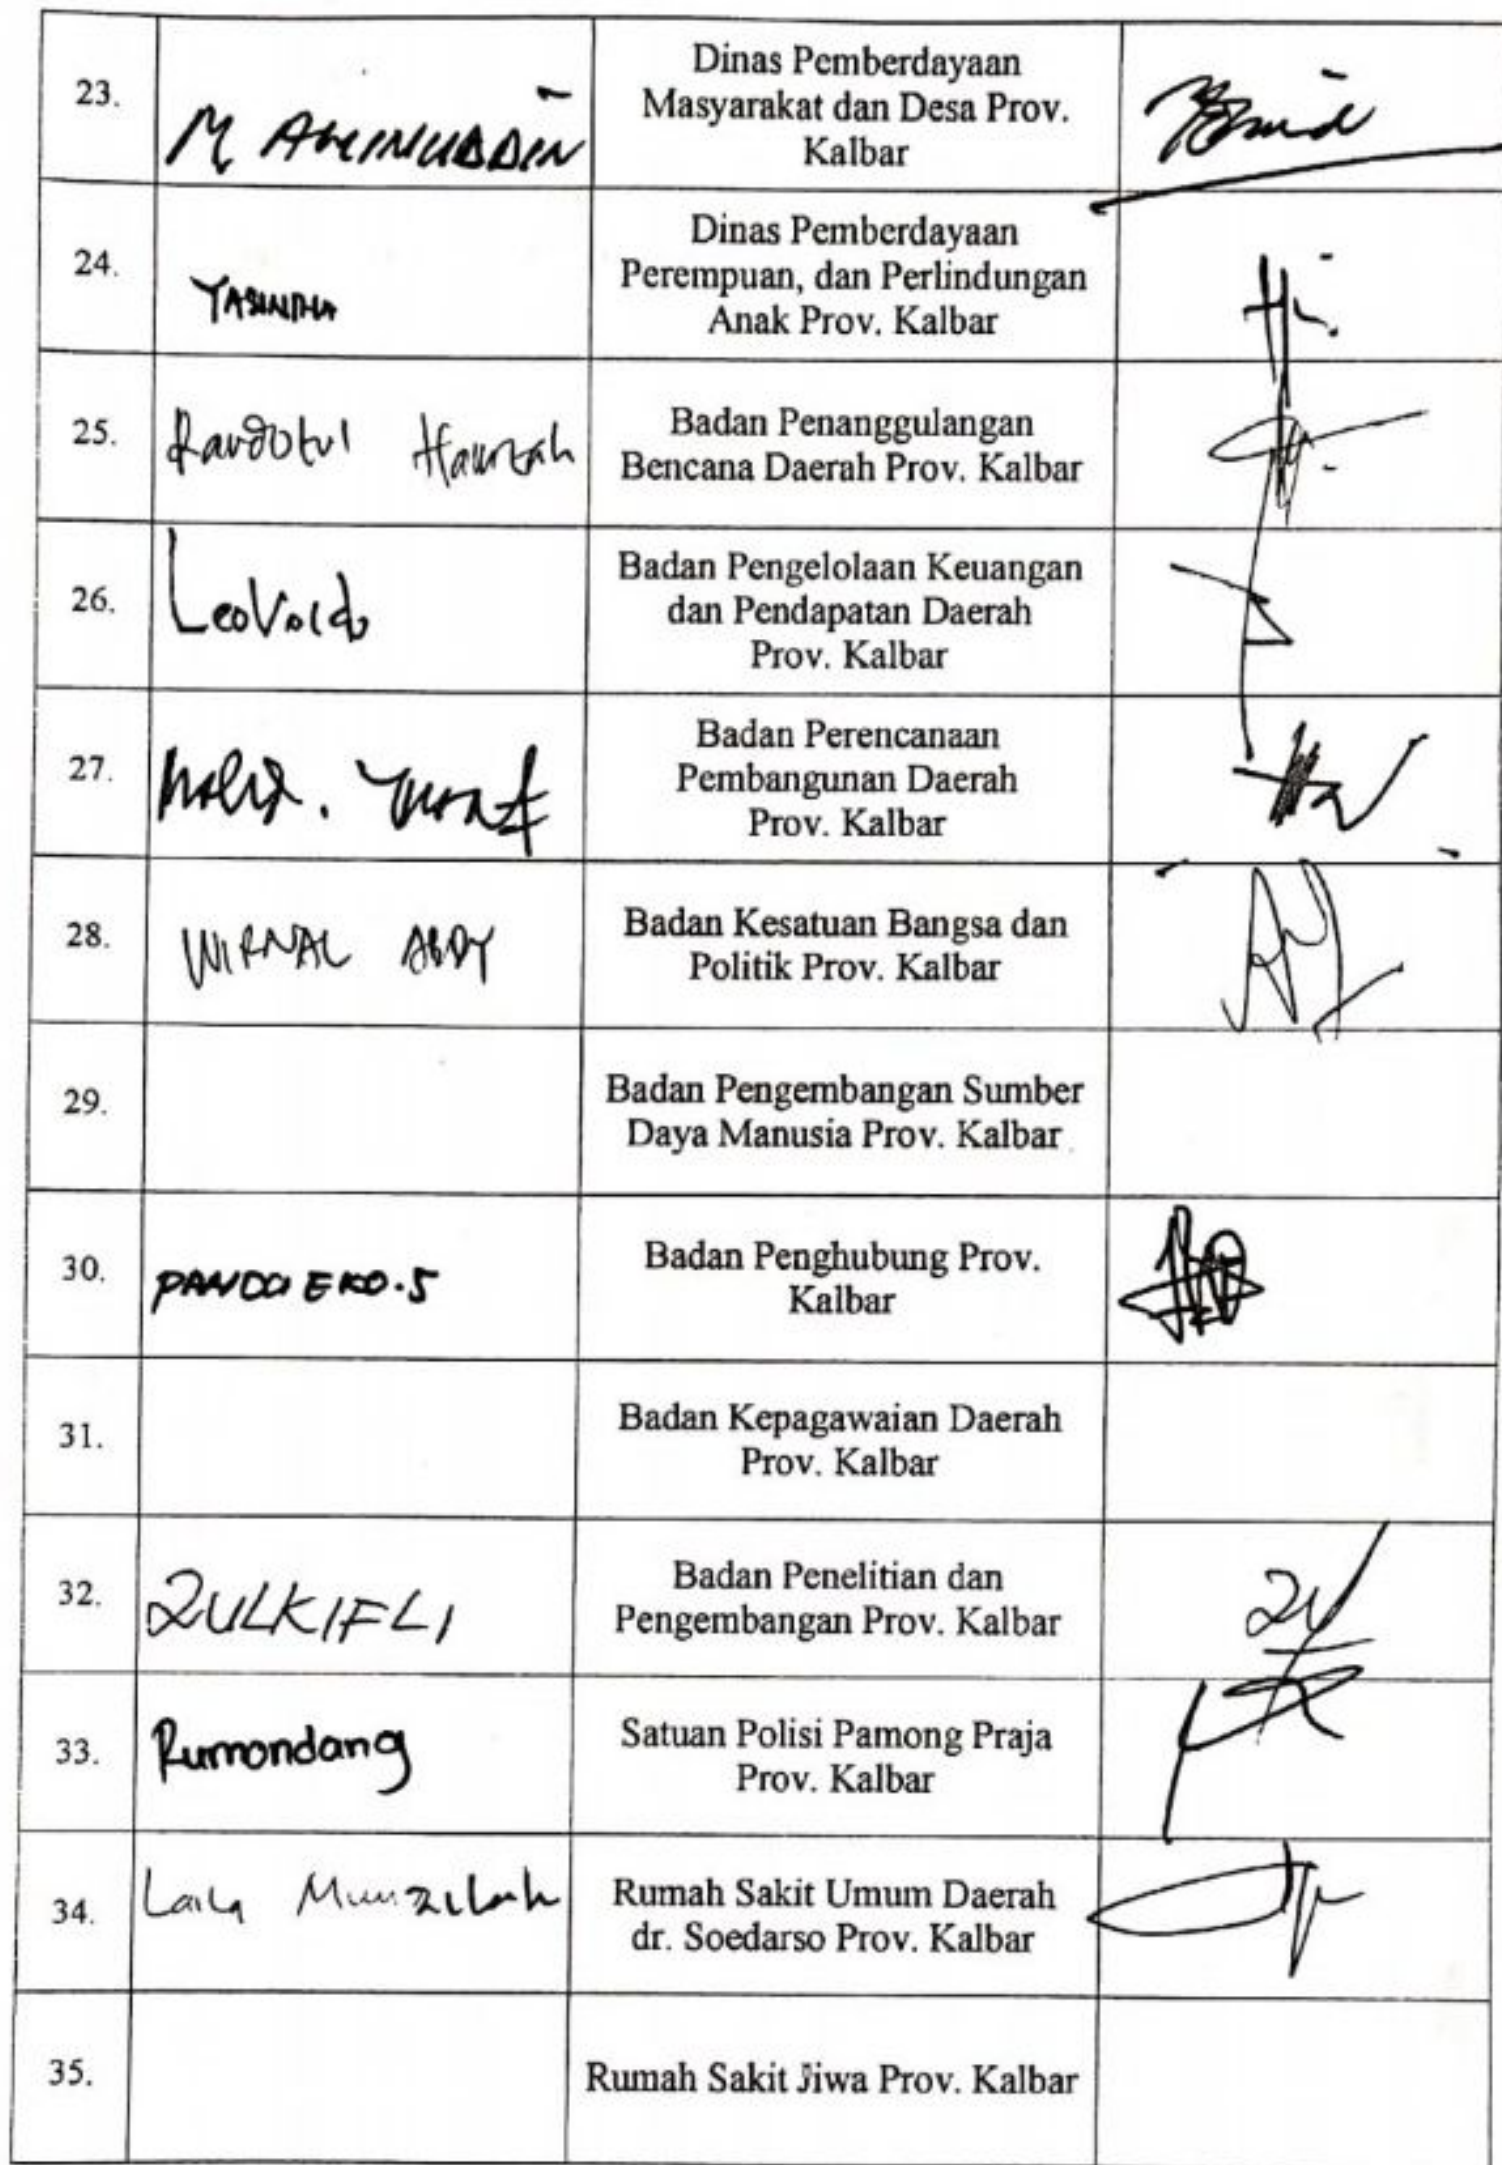 23.
M AMINUDDIN
Dinas Pemberdayaan
Masyarakat dan Desa Prov.
Kalbar
24.
Dinas Pemberdayaan
Perempuan, dan Perlindungan
Anak Prov. Kalbar
25.
Raudotul Hamzah
Badan Penanggulangan
Bencana Daerah Prov. Kalbar
26.
Leovaldo
Badan Pengelolaan Keuangan
dan Pendapatan Daerah
Prov. Kalbar
27.
Badan Perencanaan
Pembangunan Daerah
Prov. Kalbar
28.
WIRNAL ABDY
Badan Kesatuan Bangsa dan
Politik Prov. Kalbar
29.
Badan Pengembangan Sumber
Daya Manusia Prov. Kalbar
30.
EKO.S
Badan Penghubung Prov.
Kalbar
31.
Badan Kepagawaian Daerah
Prov. Kalbar
32.
ZULKIFLI
Badan Penelitian dan
Pengembangan Prov. Kalbar
33.
Rumondang
Satuan Polisi Pamong Praja
Prov. Kalbar
34.
Laila Munzilah
Rumah Sakit Umum Daerah
dr. Soedarso Prov. Kalbar
35.
Rumah Sakit Jiwa Prov. Kalbar